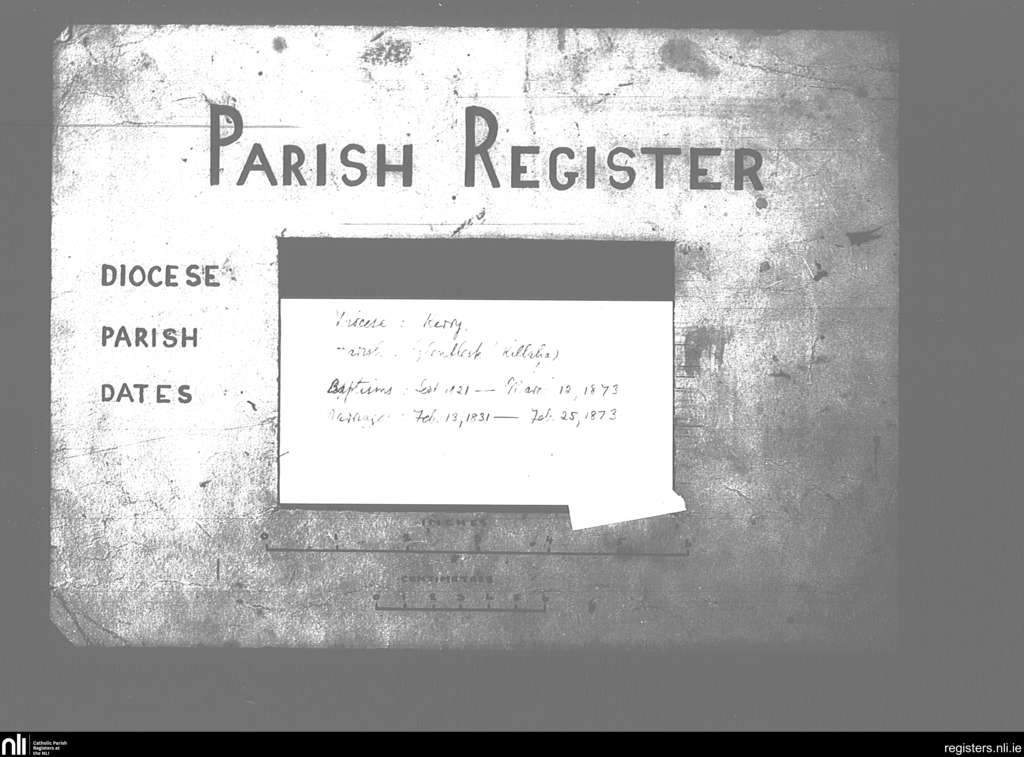 PARISH REGISTER
DIOCESE
PARISH
DATES
Diocese : Kerry.
Parish : Glenflesk (Killaha)
Baptisms : Sept 1821 — Mar 12, 1873
Marriages : Feb. 13, 1831 — Feb. 25, 1873
INCHES
0 1 2 3 4 5 6
CENTIMETRES
nli
Catholic Parish
Registers at
the NLI
registers.nli.ie